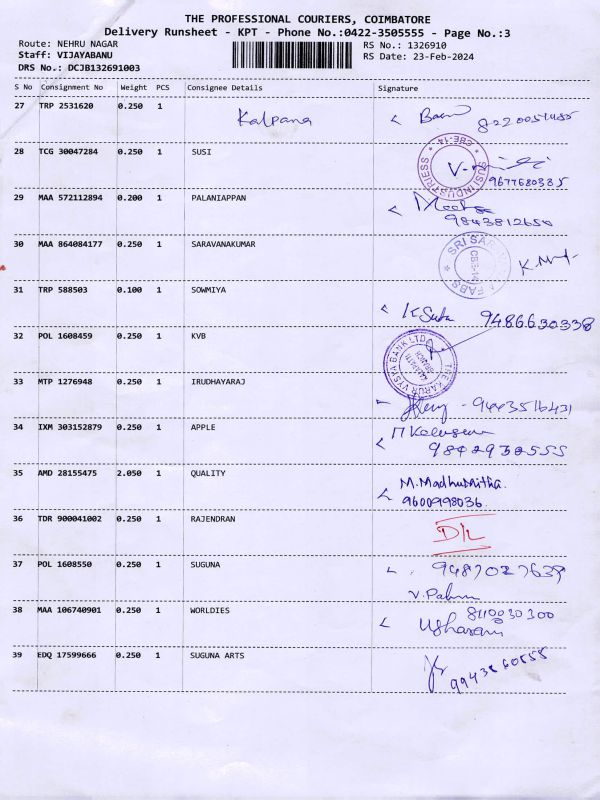 THE PROFESSIONAL COURIERS, COIMBATORE
Delivery Runsheet - KPT - Phone No.:0422-3505555 - Page No.:3
Route: NEHRU NAGAR
RS No.: 1326910
Staff: VIJAYABANU
RS Date: 23-Feb-2024
DRS No.: DCJB132691003
S No Consignment No Weight PCS Consignee Details Signature
27 TRP 2531620 0.250 1 Kalpana
28 TCG 30047284 0.250 1 SUSI
SUSI INDUSTRIESS * CBE-14 *
9677680385
29 MAA 572112894 0.200 1 PALANIAPPAN
9843812650
30 MAA 864084177 0.250 1 SARAVANAKUMAR
SRI FABS CBE-14
31 TRP 588503 0.100 1 SOWMIYA
K Suta 9486630338
32 POL 1608459 0.250 1 KVB
THE KARUR VYSYA BANK LTD
33 MTP 1276948 0.250 1 IRUDHAYARAJ
- 9443516431
34 IXM 303152879 0.250 1 APPLE
9842932555
35 AMD 28155475 2.050 1 QUALITY
M. MadhuMitha.
9600998036.
36 TDR 900041002 0.250 1 RAJENDRAN
D/L
37 POL 1608550 0.250 1 SUGUNA
9487027639
38 MAA 106740901 0.250 1 WORLDIES
8110030300
Usharani
39 EDQ 17599666 0.250 1 SUGUNA ARTS